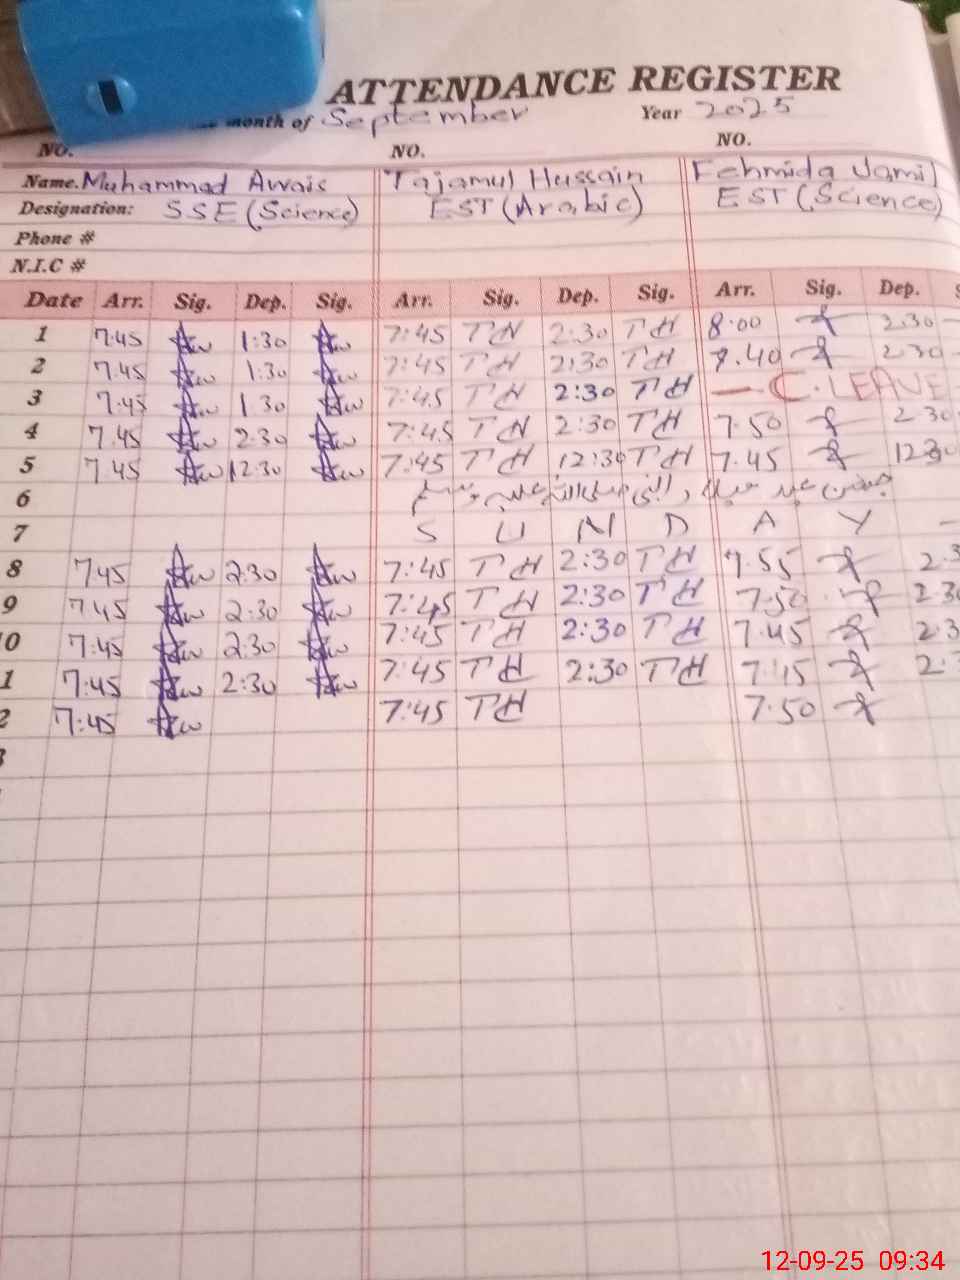 ATTENDANCE REGISTER
month of September Year 2025
NO. NO. NO.
Name. Muhammad Awais Tajamul Hussain Fehmida Jamil
Designation: SSE (Science) EST (Arabic) EST (Science)
Phone #
N.I.C #
Date Arr. Sig. Dep. Sig. Arr. Sig. Dep. Sig. Arr. Sig. Dep. S
1 7:45 Aw 1:30 Aw 7:45 TH 2:30 TH 8.00 2:30
2 7:45 Aw 1:30 Aw 7:45 TH 2:30 TH 7.40 2:30
3 7:45 Aw 1:30 Aw 7:45 TH 2:30 TH — C. LEAVE
4 7:45 Aw 2:30 Aw 7:45 TH 2:30 TH 7.50 2:30
5 7:45 Aw 12:30 Aw 7:45 TH 12:30 TH 7.45 12:30
6 جشن عید میلاد النبی صلی اللہ علیہ وسلم
7 S U N D A Y —
8 7:45 Aw 2:30 Aw 7:45 TH 2:30 TH 7.55 2.3
9 7:45 Aw 2:30 Aw 7:45 TH 2:30 TH 7.50 2.30
10 7:45 Aw 2:30 Aw 7:45 TH 2:30 TH 7.45 2.3
1 7:45 Aw 2:30 Aw 7:45 TH 2:30 TH 7.45 2.
2 7:45 Aw 7:45 TH 7.50
3
12-09-25 09:34